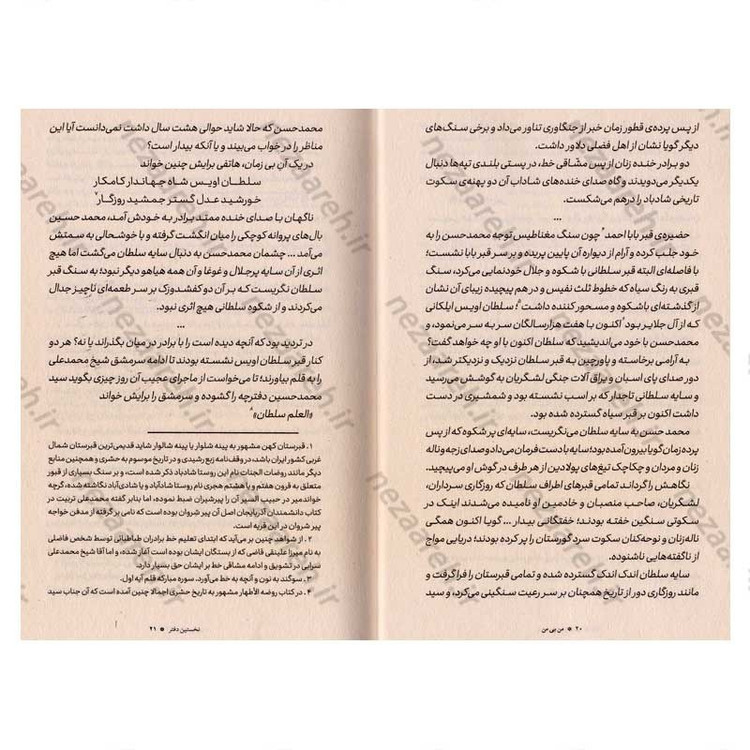 از پس پرده‌ی قطور زمان خبر از جنگاوری تناور می‌داد و برخی سنگ‌های
دیگر گویا نشان از اهل فضلی دلاور داشت.
دو برادر خنده زنان از پس مشّاقی خط، در پستی بلندی تپه‌ها دنبال
یکدیگر می‌دویدند و گاه صدای خنده‌های شاداب آن دو پهنه‌ی سکوت
تاریخی شادباد را درهم می‌شکست.
...
حضیره‌ی قبر بابا احمد چون سنگ مغناطیس توجه محمدحسن را به
خود جلب کرده و آرام از دیواره آن پایین پریده و بر سر قبر بابا نشست؛
با فاصله‌ای البته قبر سلطانی با شکوه و جلال خودنمایی می‌کرد، سنگ
قبری به رنگ سیاه که خطوط ثلث نفیس و در هم پیچیده زیبای آن نشان
از گذشته‌ای باشکوه و مسحور کننده داشت؛ سلطان اویس ایلکانی
که از آل جلایر بود اکنون با هفت هزارسالگان سر به سر می‌نمود، و
محمدحسن با خود می‌اندیشید که سلطان با او چه خواهد گفت؟
به آرامی برخاسته و پاورچین به قبر سلطان نزدیک و نزدیکتر شد، از
دور صدای پای اسبان و یراق آلات جنگی لشگریان به گوشش می‌رسید
و سایه سلطانی تاجدار که بر اسب نشسته بود و شمشیری در دست
داشت اکنون بر قبر سیاه گسترده شده بود.
محمد حسن به سایه سلطان می‌نگریست، سایه‌ای پر شکوه که از پس
پرده زمان گویا بیرون آمده بود؛ سایه با دست فرمان می‌داد و صدای زجه و ناله
زنان و مردان و چکاچک تیغ‌های پولادین از هر طرف در گوش او می‌پیچید.
نگاهش را گرداند تمامی قبرهای اطراف سلطان که روزگاری سرداران،
لشگریان، صاحب منصبان و خادمین او نامیده می‌شدند اینک در
سکوتی سنگین خفته بودند؛ خفتگانی بیدار ... گویا اکنون همگی
ناله و نوحه‌کنان سکوت سرد گورستان را پر کرده بودند؛ دریایی مواج
از ناگفته‌هایی ناشنوده.
سایه سلطان اندک اندک گسترده شده و تمامی قبرستان را فرا گرفت و
مانند روزگاری دور از تاریخ همچنان بر سر رعیت سنگینی می‌کرد، و سید
۲۰ * من بی من
محمدحسن که حالا شاید حوالی هشت سال داشت نمی‌دانست آیا این
مناظر را در خواب می‌بیند و یا آنکه بیدار است؟
در یک آنِ بی زمان، هاتفی برایش چنین خواند
سلطان اویس شاه جهاندار کامکار
خورشید عدل گستر جمشید روزگار
ناگهان با صدای خنده ممتد برادر به خودش آمد، محمد حسین
بال‌های پروانه کوچکی را میان انگشت گرفته و با خوشحالی به سمتش
می‌آمد ... چشمان محمدحسن به دنبال سایه سلطان می‌گشت اما هیچ
اثری از آن سایه پرجلال و غوغا و آن همه هیاهو دیگر نبود؛ به سنگ قبر
سلطان نگریست که بر آن دو کفشدوزک بر سر طعمه‌ای ناچیز جدال
می‌کردند و از شکوه سلطانی هیچ اثری نبود.
...
در تردید بود که آنچه دیده است را با برادر در میان بگذراند یا نه؟ هر دو
کنار قبر سلطان اویس نشسته بودند تا ادامه سرمشق شیخ محمدعلی
را به قلم بیاورند؛ تا می‌خواست از ماجرای عجیب آن روز چیزی بگوید سید
محمدحسین دفترچه را گشوده و سرمشق را برایش خواند
«العلم سلطان»
۱. قبرستان کهن مشهور به پینه شلوار یا پینه شالوار شاید قدیمی‌ترین قبرستان شمال
غربی کشور ایران باشد، در وقف‌نامه ربع رشیدی و در تاریخ موسوم به حشری و همچنین منابع
دیگر مانند روضات الجنات نام این روستا شادباد ذکر شده است، و بر سنگ بسیاری از قبور
متعلق به قرون هفتم و یا هشتم هجری نام روستا شادباد و یا شادی‌آباد نگاشته شده، گرچه
خواندمیر در حبیب السیر آن را پیرشیران ضبط نموده، اما بنابر گفته محمدعلی تربیت در
کتاب دانشمندان آذربایجان اصل آن پیر شروان بوده است که نامی بر گرفته از مدفن خواجه
پیر شروان در این قریه است.
۲. از شواهد چنین بر می‌آید که ابتدای تعلیم خط برادران طباطبائی توسط شخص فاضلی
به نام میرزا علینقی قاضی که از بستگان ایشان بوده است آغاز شده، و اما آقا شیخ محمدعلی
سرابی در تشویق و ادامه مشاقی خط بر ایشان حق بسیار دارد.
۳. سوگند به نون و آنچه به خط می‌آورد. سوره مبارکه قلم آیه اول.
۴. در کتاب روضه الأطهار مشهور به تاریخ حشری اجمالا چنین آمده است که آن جناب سید
نخستین دفتر * ۲۱
nezaareh.ir